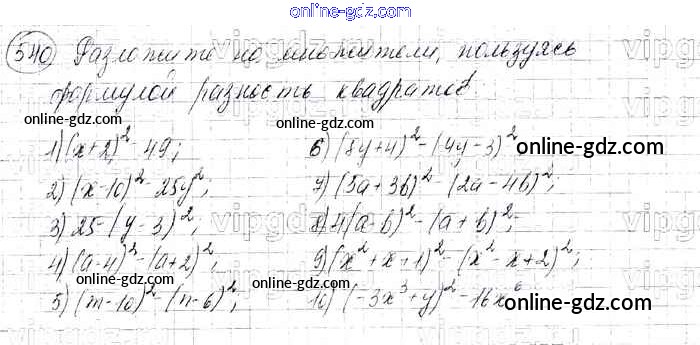 online-gdz.com
540) Разложите на множители, пользуясь
формулой разность квадратов:
online-gdz.com
online-gdz.com
1) (x+2)² - 49;
6) (8y+4)² - (4y-3)²
online-gdz.com
2) (x-10)² - 25y²;
7) (5a+3b)² - (2a-4b)²;
3) 25-(y-3)²;
8) 4(a-b)² - (a+b)²;
online-gdz.com
4) (a-4)² - (a+2)²;
9) (x²+x+1)² - (x²-x+2)²;
online-gdz.com
5) (m-10)² - (n-6)²;
10) (-3x³+y)² - 16x⁶
online-gdz.com
online-gdz.com